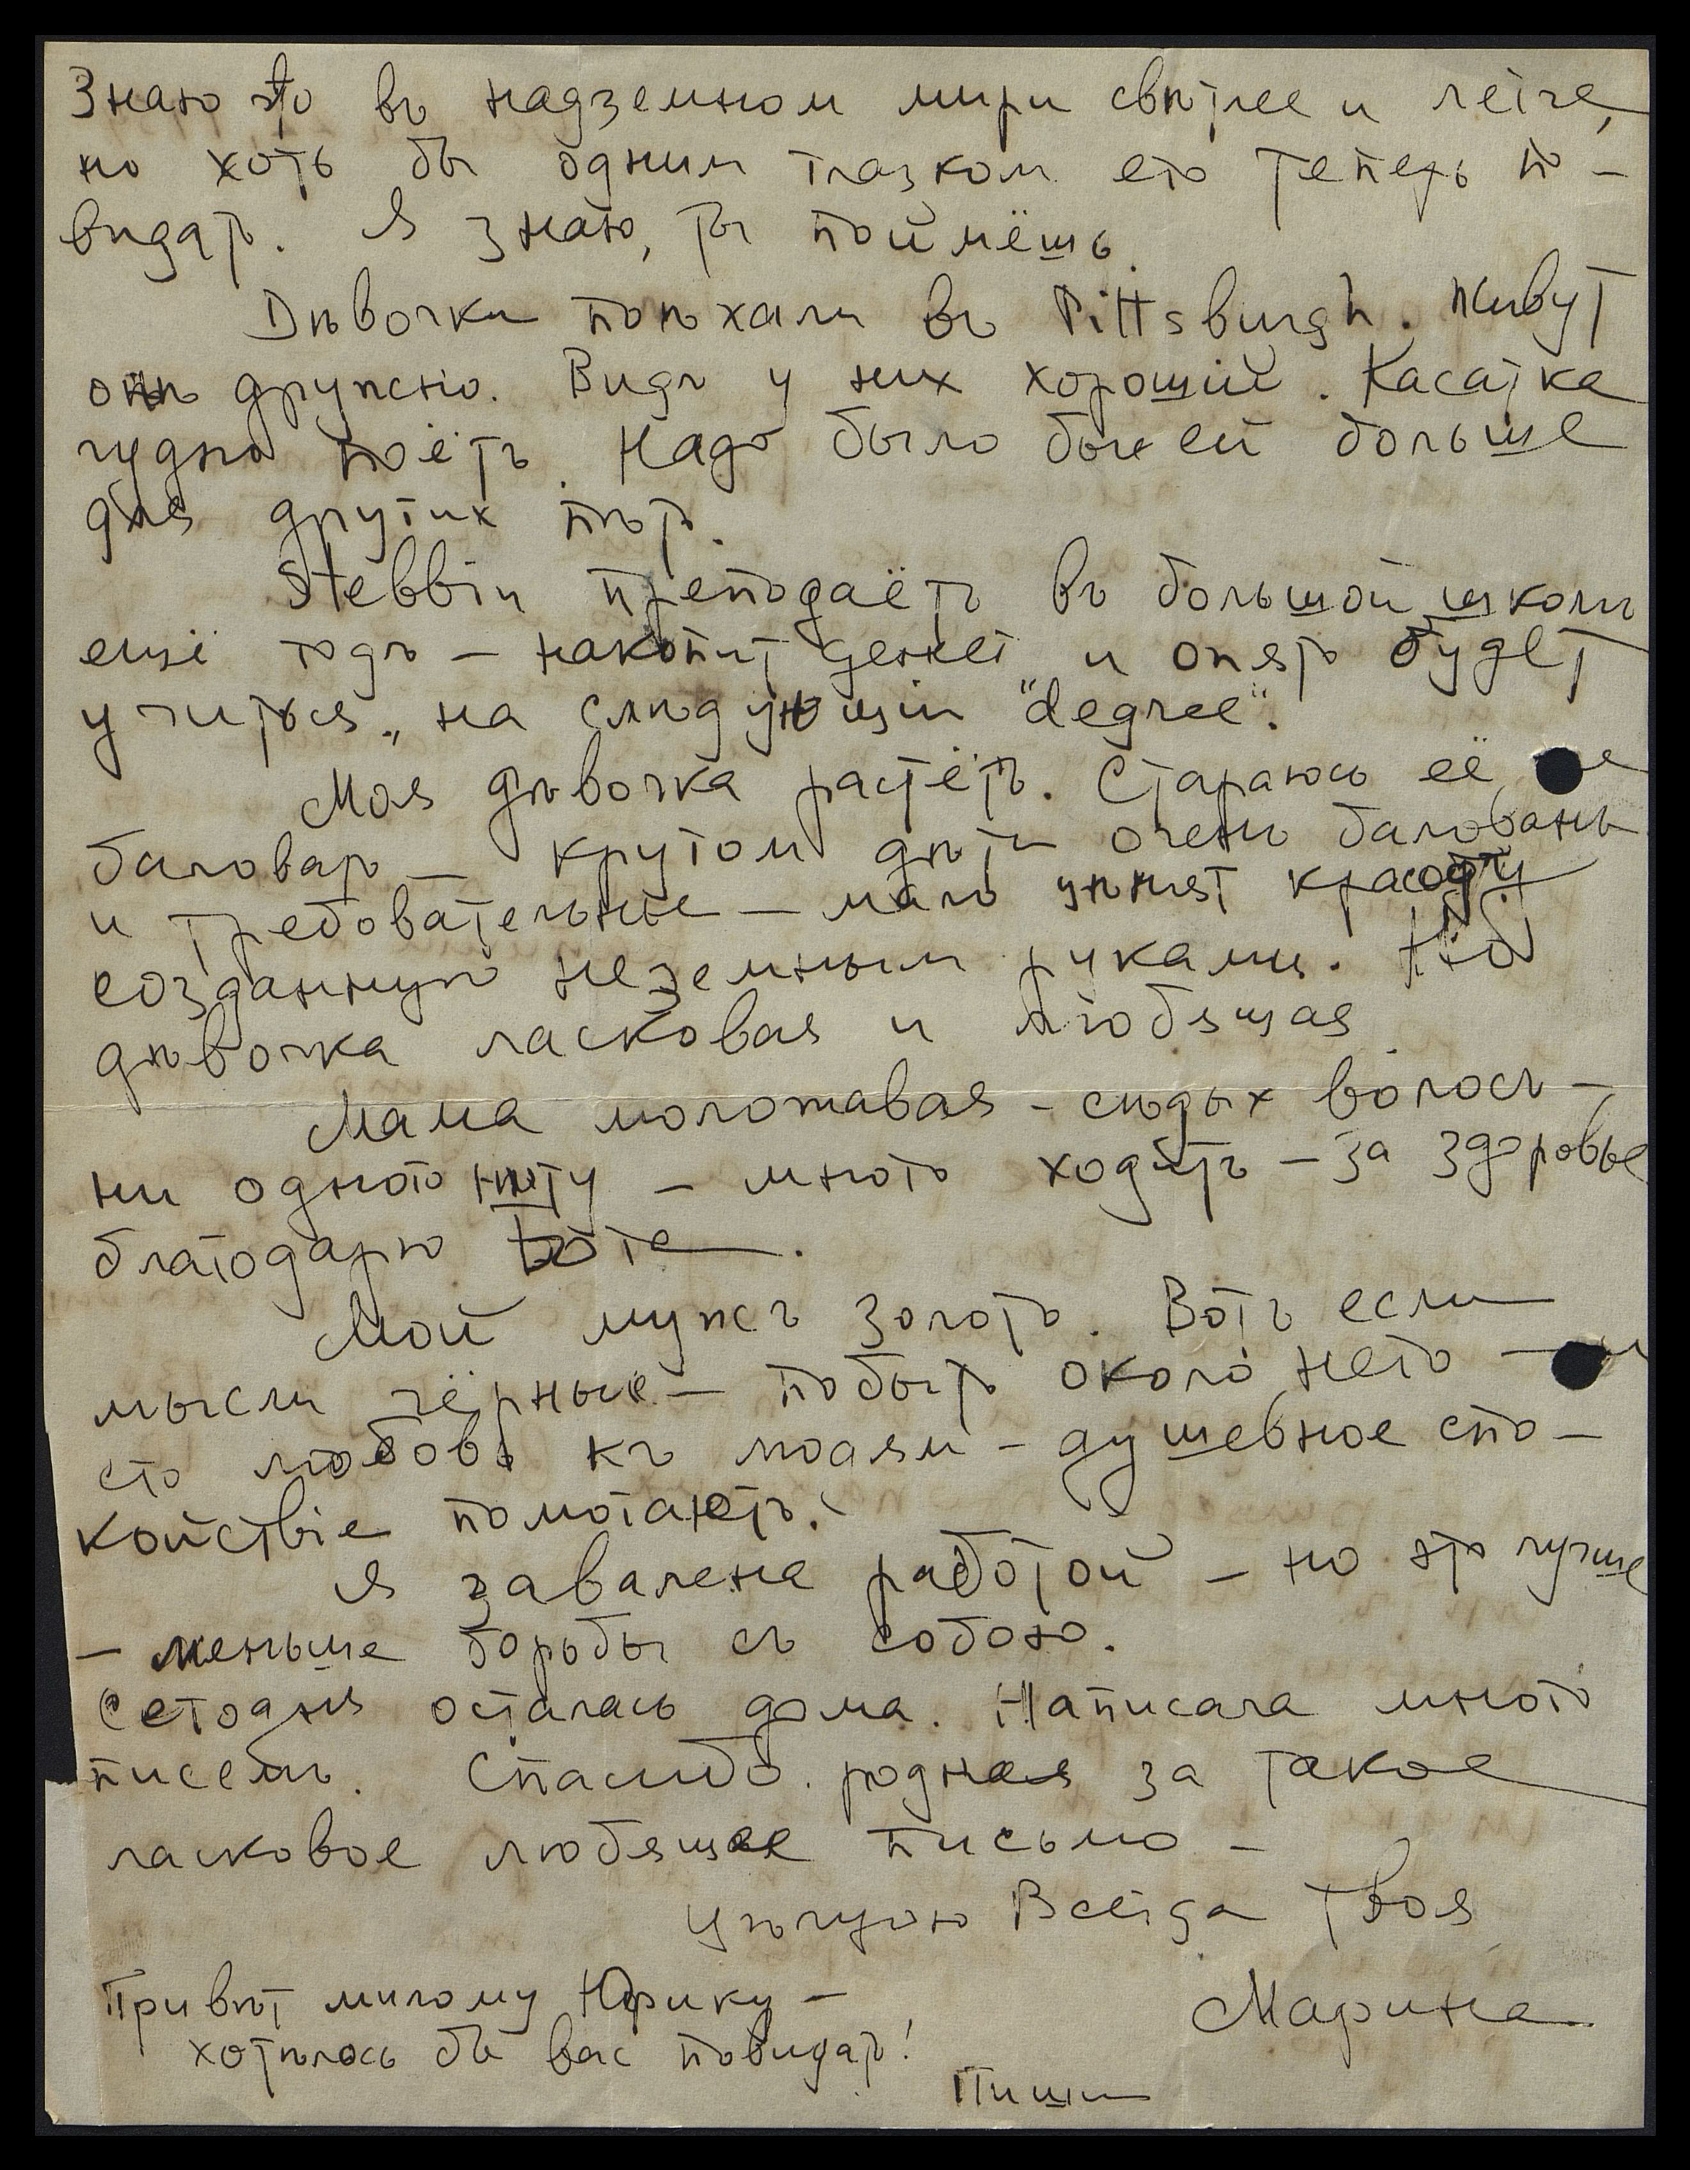 Знаю что въ надземном мири свѣтлее и легче,
но хоть бы одним глазком его теперь по-
видать. Я знаю, ты поймёшь.
Дѣвочки поѣхали въ Pittsburgh. Живут
онѣ дружно. Видъ у них хорошій. Касатка
чудно поётъ. Надо было бы ей больше
для других пѣть.
Stebbin преподаётъ въ большой школѣ
ещё годъ – накопит денег и опять будет
учиться „ на слѣдующій "degree".
Моя дѣвочка растётъ. Стараюсь её не
баловать – кругом дѣти очень балованы
и требовательные – мало цѣнят красоту
созданную неземным руками. Но
дѣвочка ласковая и любящая.
Мама моложавая – сѣдых волосъ –
ни одного нѣту – много ходитъ – за здоровье
благодарю Бога.
Мой мужъ золото. Вотъ если
мысли чёрные – побыть около него – и
его любовь къ людям – душевное спо-
койствіе помогаютъ.
Я завалена работой – но это лучше
– меньше борьбы съ собою.
Сегодня осталась дома. Написала много
писемъ. Спасибо родная за такое
ласковое любящее письмо –
Цѣлую Всегда Твоя
Марина
Привѣт милому Юрику –
хотѣлось бы вас повидать!
Пиши